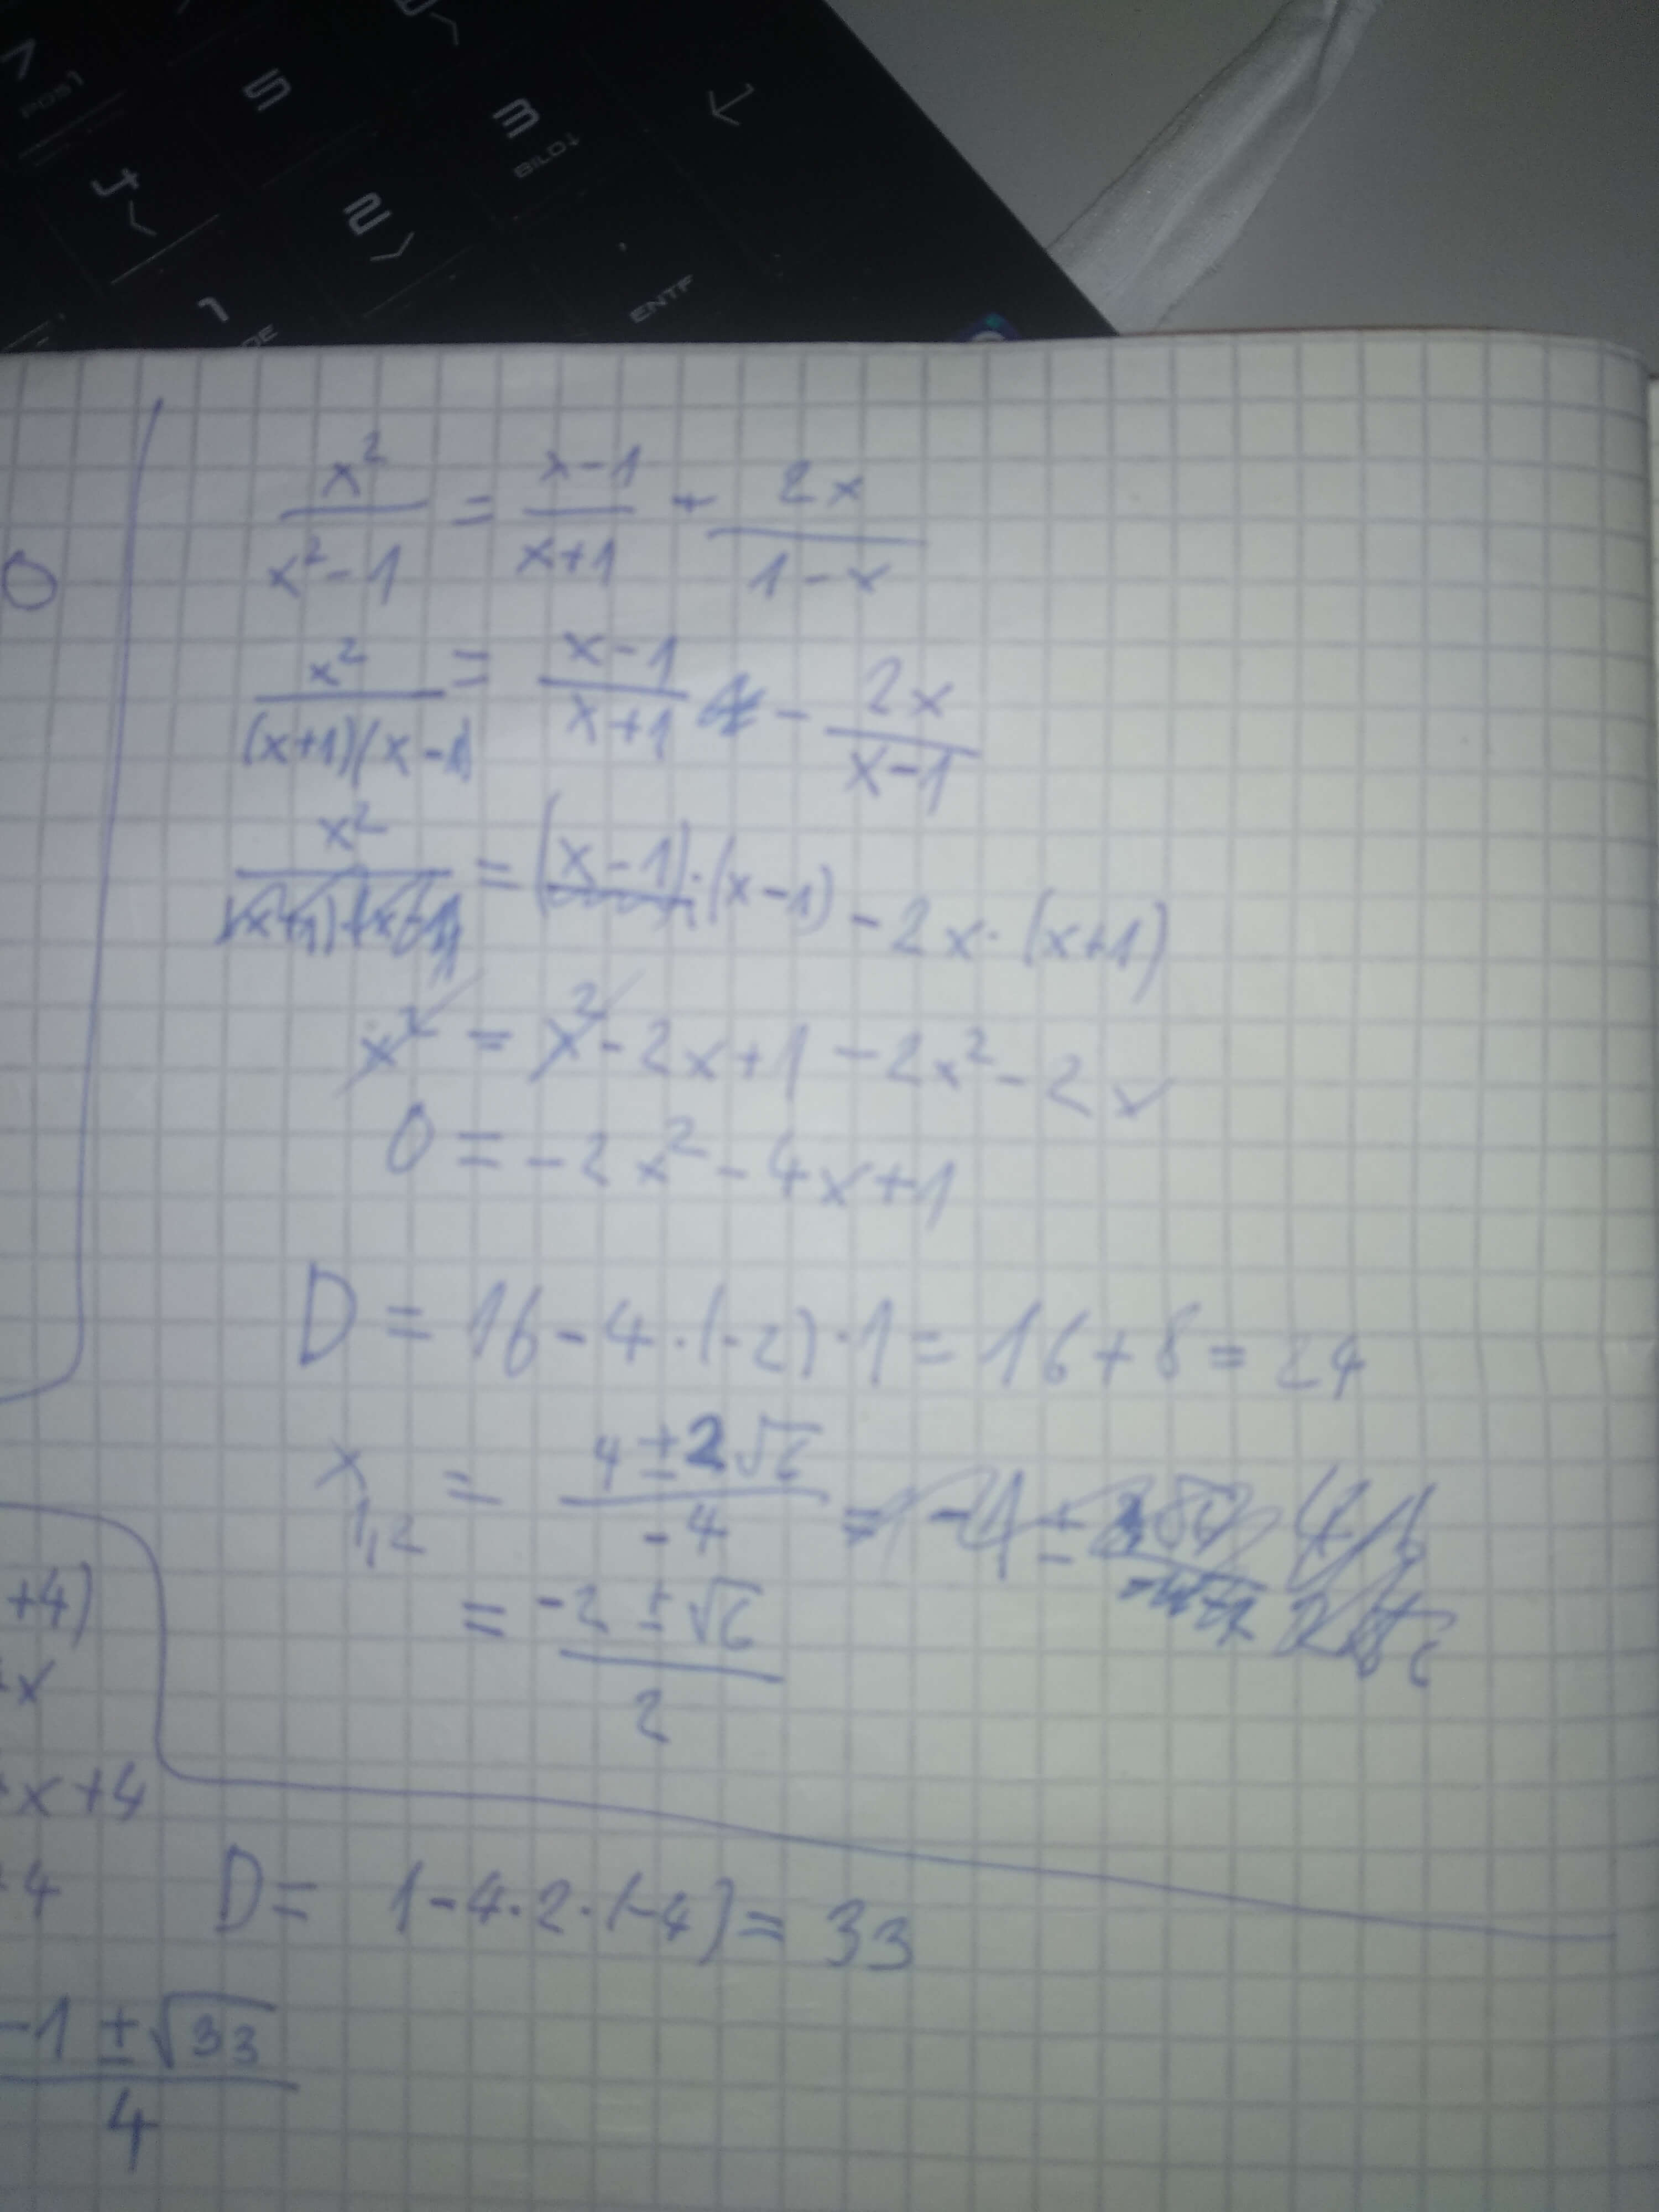 7
POS1
5
3
BILD↓
4
2
1
ENTF
0
x²/(x²-1) = (x-1)/(x+1) + 2x/(1-x)
x²/((x+1)(x-1)) = (x-1)/(x+1) - 2x/(x-1)
x² = (x-1)·(x-1) - 2x·(x+1)
x² = x² - 2x + 1 - 2x² - 2x
0 = -2x² - 4x + 1
D = 16 - 4·(-2)·1 = 16 + 8 = 24
x₁,₂ = (4 ± 2√6)/(-4)
= (-2 ± √6)/2
+4)
x
x+4
4
D = 1-4·2·(-4) = 33
(-1 ± √33)/4